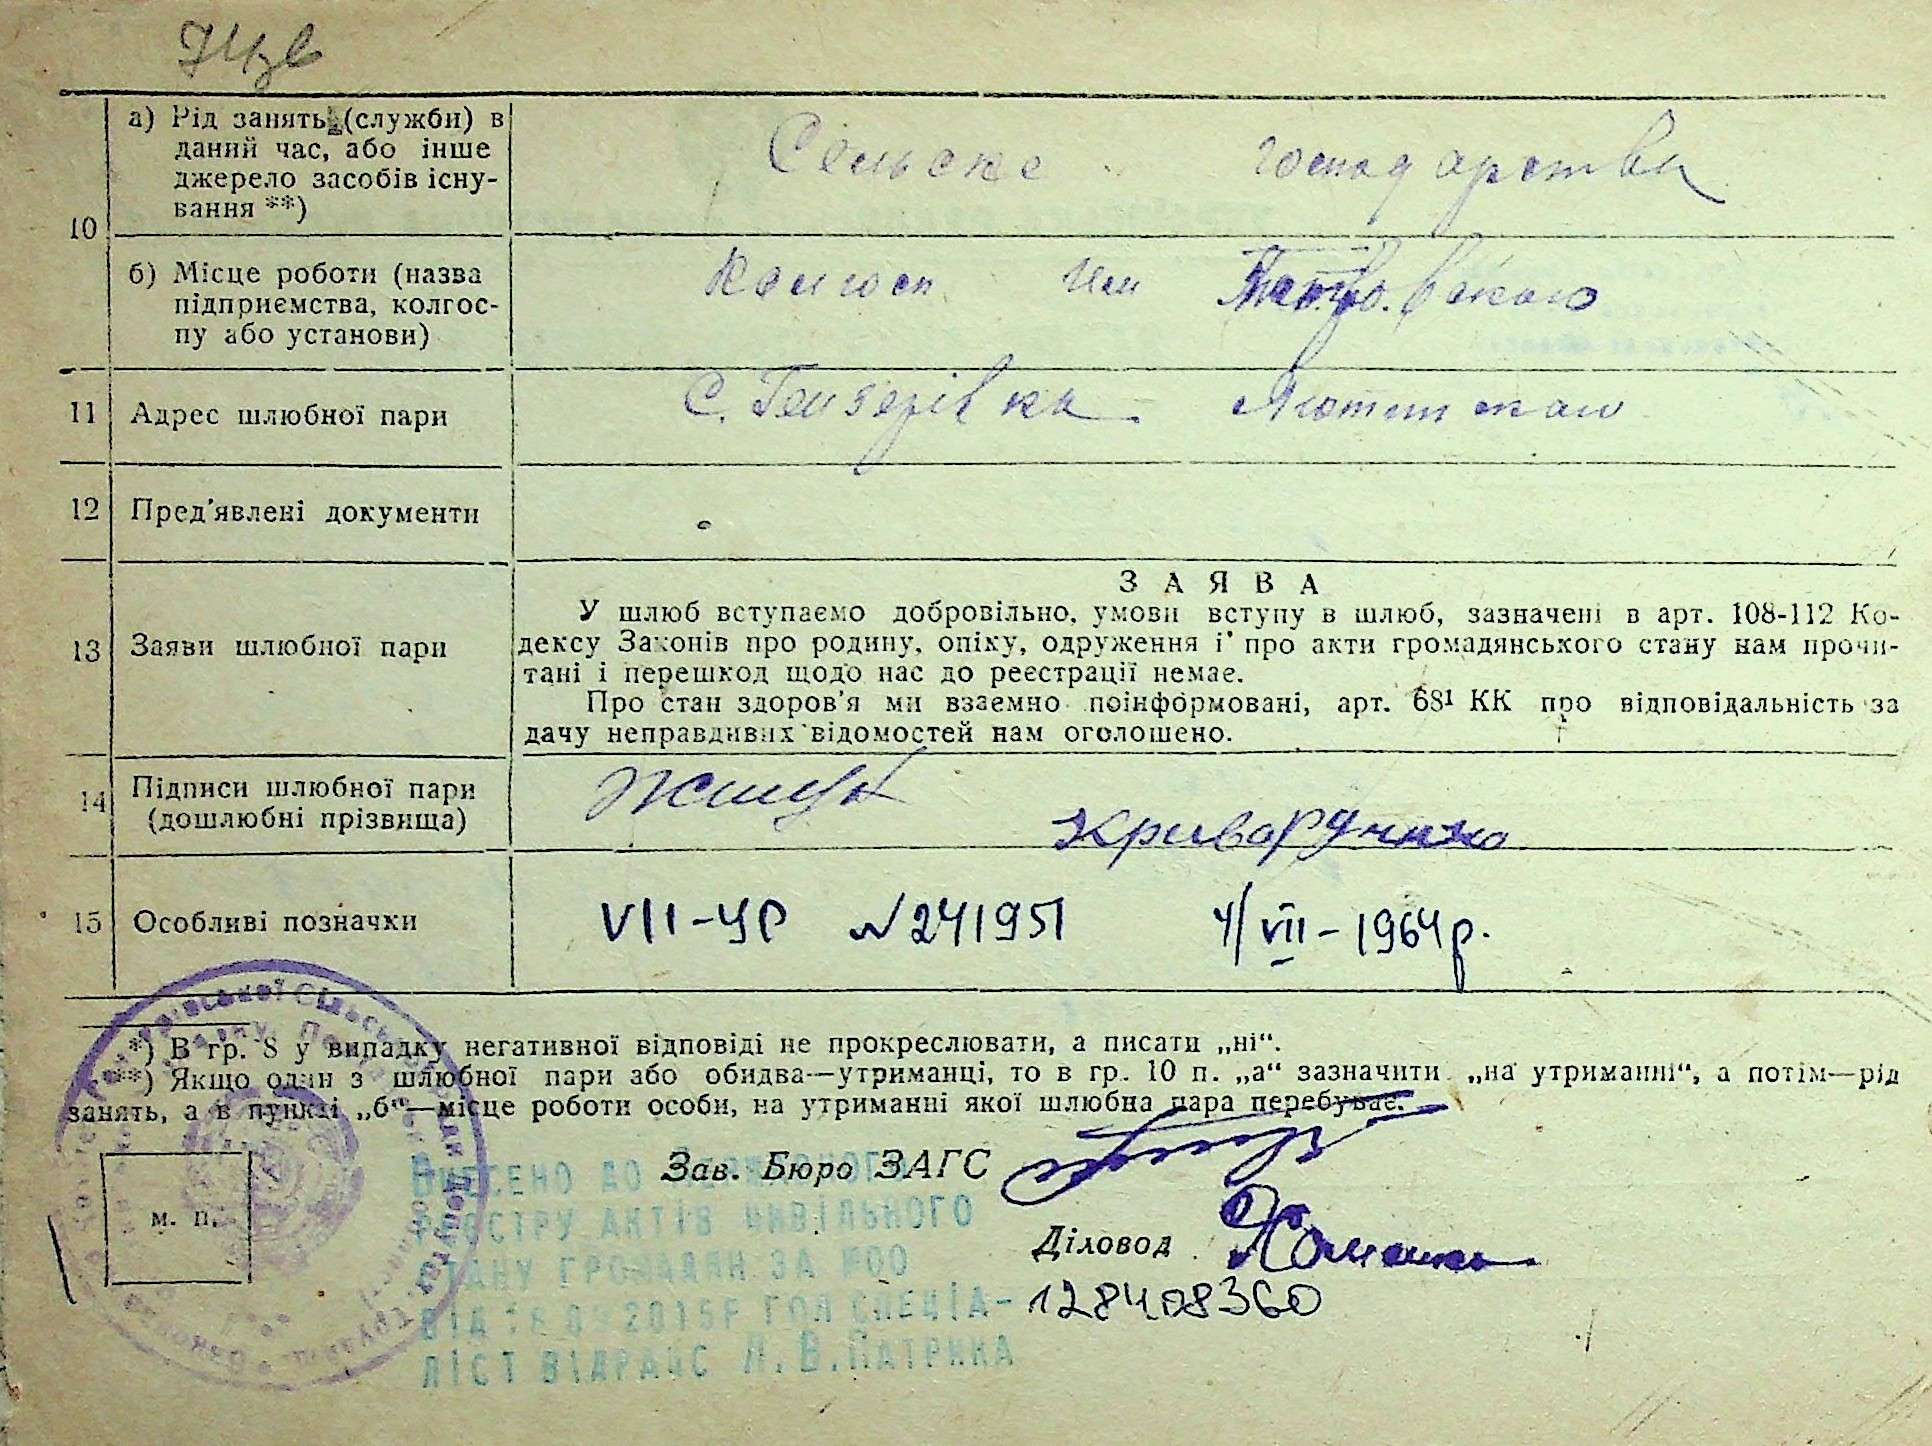 10
а) Рід занять (служби) в
даний час, або інше
джерело засобів існу-
вання **)
Сельске господарства
б) Місце роботи (назва
підприємства, колгос-
пу або установи)
Колгосп
11 Адрес шлюбної пари
12 Пред'явлені документи
13 Заяви шлюбної пари
ЗАЯВА
У шлюб вступаємо добровільно, умови вступу в шлюб, зазначені в арт. 108-112 Ко-
дексу Законів про родину, опіку, одруження і про акти громадянського стану нам прочи-
тані і перешкод щодо нас до реєстрації немає.
Про стан здоров'я ми взаємно поінформовані, арт. 68¹ КК про відповідальність за
дачу неправдивих відомостей нам оголошено.
14 Підписи шлюбної пари
(дошлюбні прізвища)
Криворучко
15 Особливі позначки
VII-УР №241951 4/VII-1964р.
*) В гр. 8 у випадку негативної відповіді не прокреслювати, а писати „ні“.
**) Якщо один з шлюбної пари або обидва—утриманці, то в гр. 10 п. „а“ зазначити „на утриманні“, а потім—рід
занять, а в пункті „б“—місце роботи особи, на утриманні якої шлюбна пара перебуває.
Зав. Бюро ЗАГС
м. п.
Діловод
128408360
ВНЕСЕНО ДО ДЕРЖАВНОГО
РЕЄСТРУ АКТІВ ЦИВІЛЬНОГО
СТАНУ ГРОМАДЯН ЗА №00
2015Р ГОЛ СПЕЦІА-
ЛІСТ ВІДРАЦС Л.В.ПАТРИКА